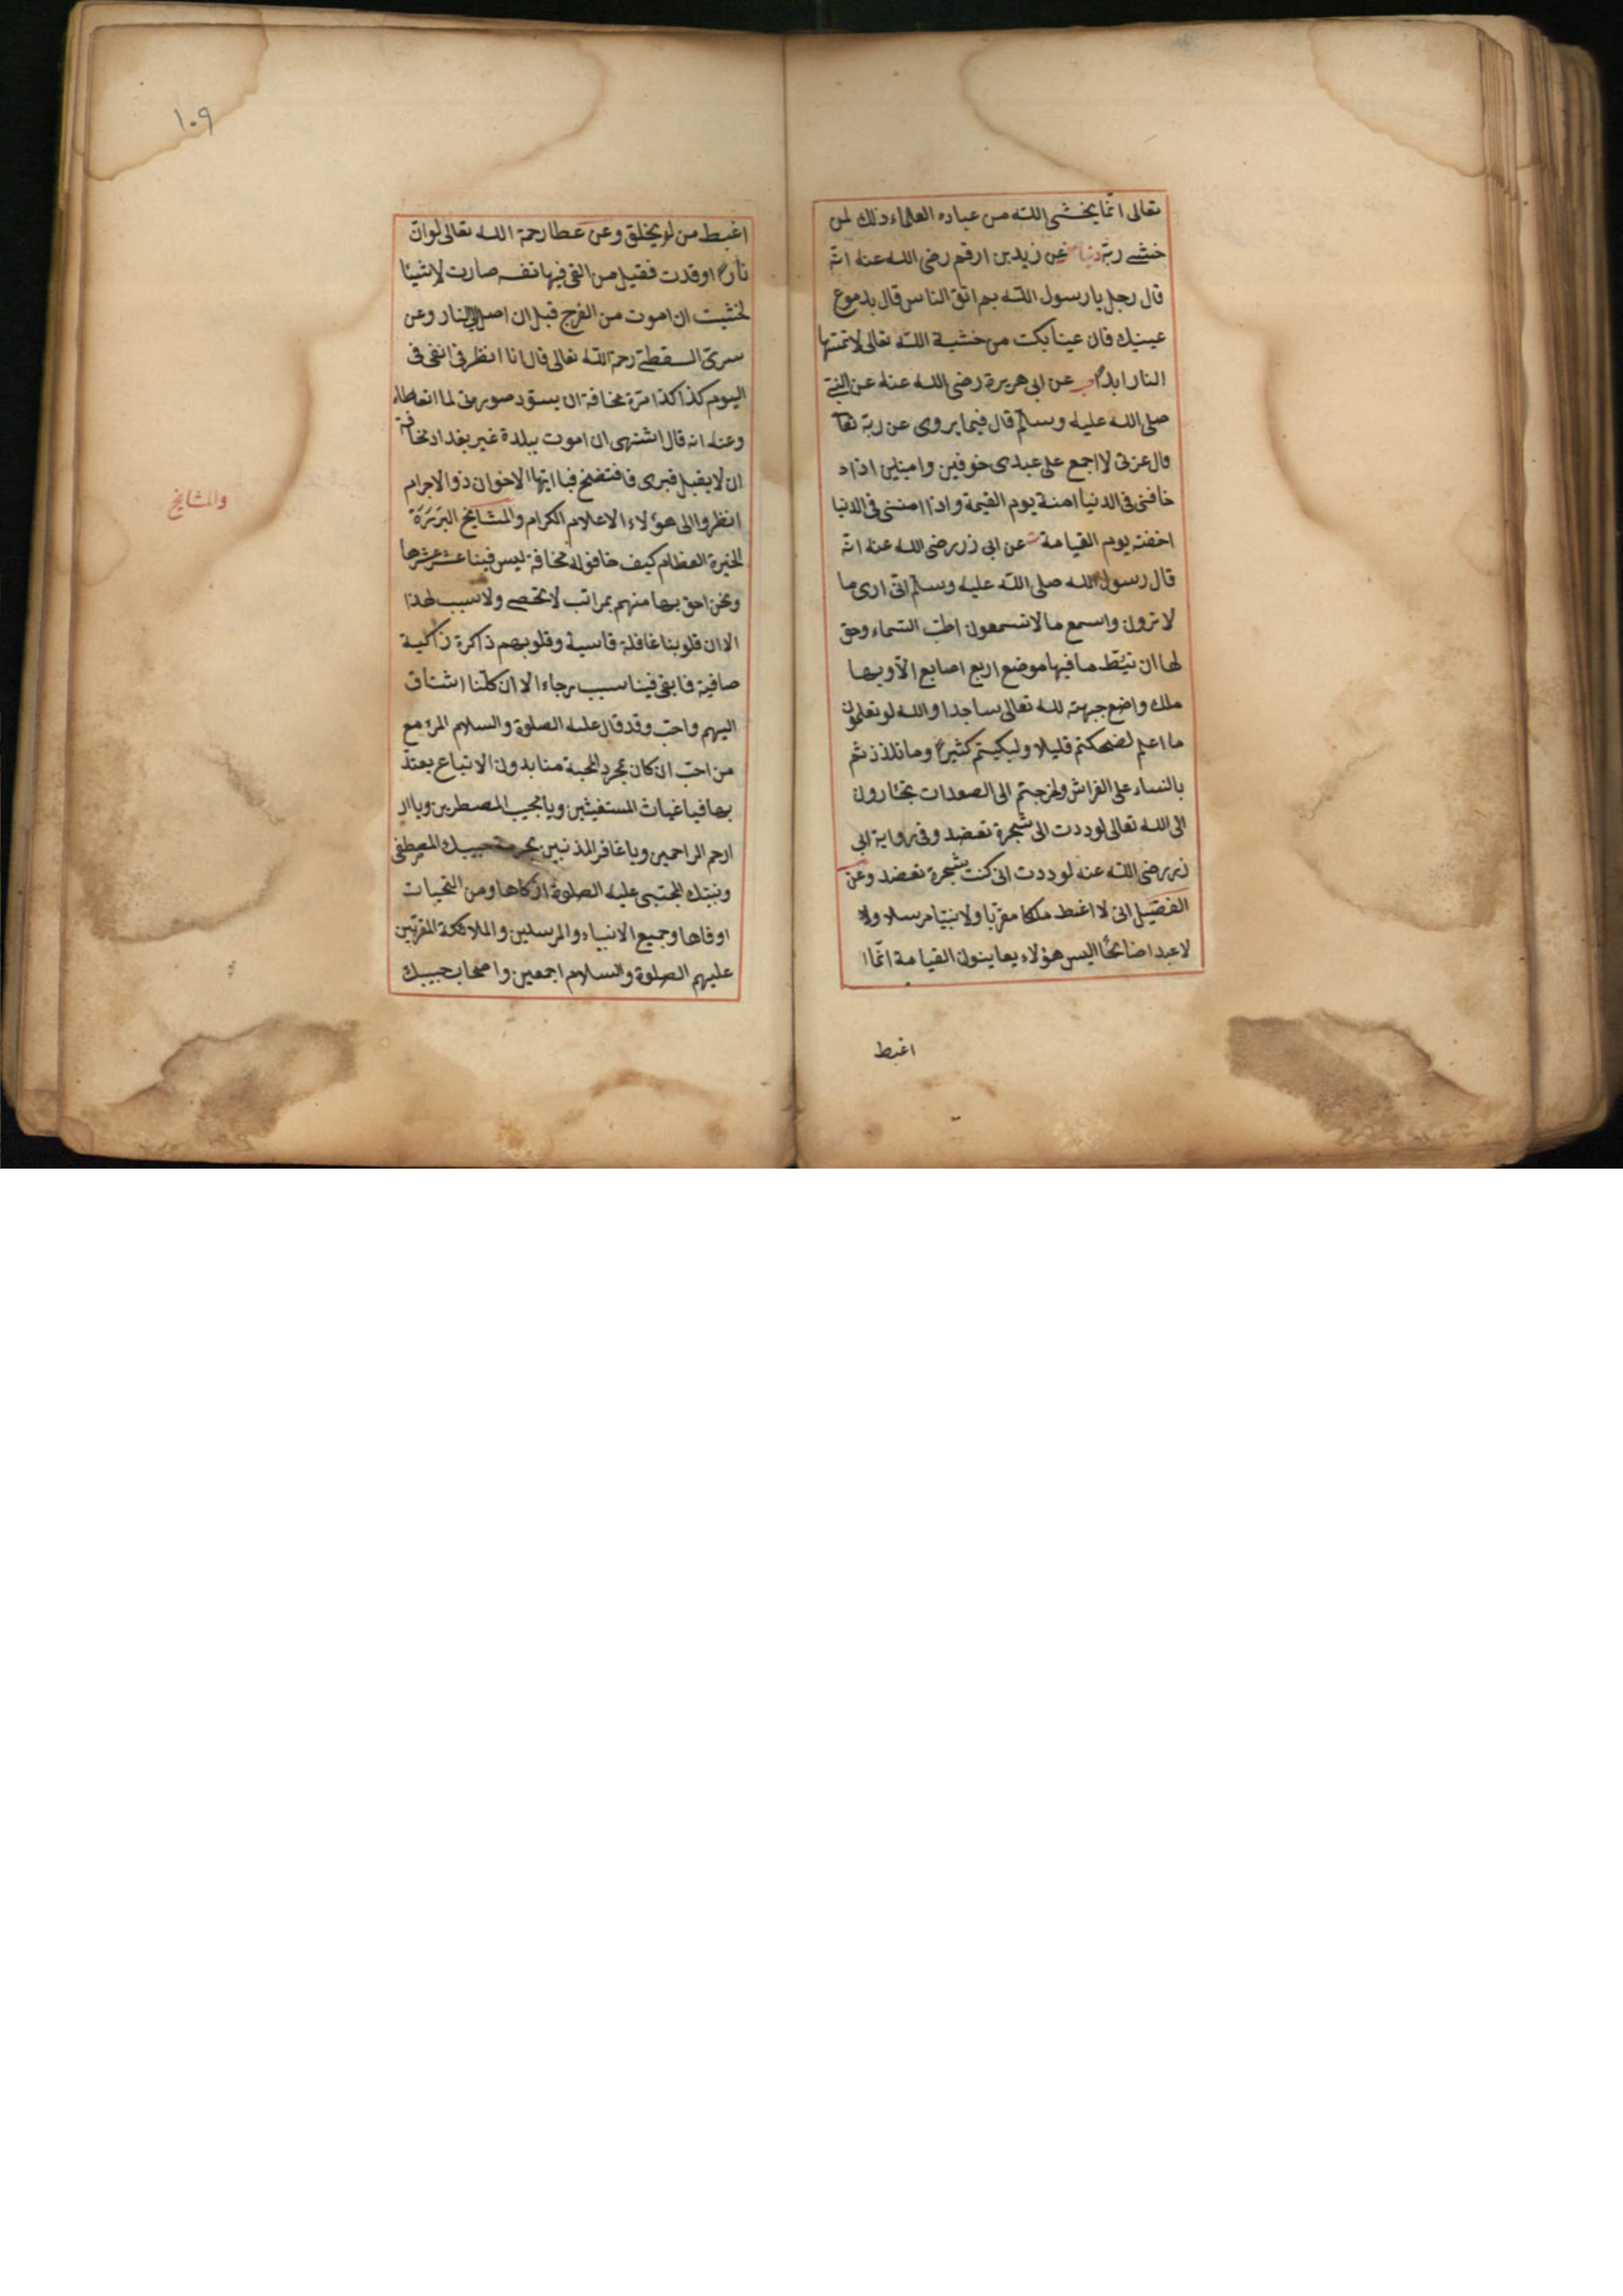 تعالى انما يخشى الله من عباده العلماء ذلك لمن
خشى ربه دنيا عن زيد بن ارقم رضى الله عنه انه
قال رجل يا رسول الله بم اتقى الناس قال بدموع
عينيك فان عينا بكت من خشية الله تعالى لا تمسها
النار ابدا حب عن ابى هريرة رضى الله عنه عن النبى
صلى الله عليه وسلم قال فيما يروى عن ربه تعا
قال عزتى لا اجمع على عبدى خوفين وامنين اذا
خافنى فى الدنيا امنة يوم القيمة واذا امننى فى الدنيا
اخفته يوم القيامة ت عن ابى زر رضى الله عنه انه
قال رسول الله صلى الله عليه وسلم انى ارى ما
لا ترون واسمع ما لا تسمعون اطت السماء وحق
لها ان تئط ما فيها موضع اربع اصابع الا وبها
ملك واضع جبهته لله تعالى ساجدا والله لو تعلمون
ما اعلم لضحكتم قليلا ولبكيتم كثيرا وما تلذذتم
بالنساء على الفراش ولخرجتم الى الصعدات تجئارون
الى الله تعالى لوددت انى شجرة تعضد وفى رواية ابى
زر رضى الله عنه لوددت انى كنت شجرة تعضد وعن
الفضيل انى لا اغبط ملكا مقربا ولا نبيا مرسلا ولا
لا عبدا صالحا اليس هؤلاء يعاينون القيامة انما ا
اغبط
١٠٩
اغبط من لو يخلق وعن عطا رحمة الله تعالى لو ان
نارا اوقدت فقيل من القى فيها نفسه صارت لا شيئا
لخشيت ان اموت من الفرح قبل ان اصل الى النار وعن
سرى السقطى رحمة الله تعالى قال انا انظر فى انفى فى
اليوم كذا كذا مرة مخافة ان يسود صورتى لما اتعاطاه
وعنه انه قال اشتهى ان اموت ببلدة غير بغداد مخافة
ان لا يقبل قبرى فافتضح فيا ايها الاخوان ذو الاجرام
انظروا الى هؤلاء الاعلام الكرام والمشايخ البررة
الخيرة العظام كيف خافوا له مخافة ليس فينا عشر عشرها
ونحن احق بها منهم بمراتب لا تحصى ولا سبب لهذا
الا ان قلوبنا غافلة قاسية وقلوبهم ذاكرة زاكية
صافية فابقى فينا سبب رجاء الا ان كلنا اشتاق
اليهم واحب وقد قال عليه الصلوة والسلام المرء مع
من احب ان كان مجرد المحبة منا بدون الاتباع يعتد
بها فيا غياث المستغيثين ويا مجيب المضطرين ويا ار
ارحم الراحمين ويا غافر المذنبين بحرمة حبيبك المصطفى
ونبيك المجتبى عليه الصلوة ازكاها ومن التحيات
اوفاها وجميع الانبياء والمرسلين والملائكة المقربين
عليهم الصلوة والسلام اجمعين واصحاب حبيبك
والمشايخ